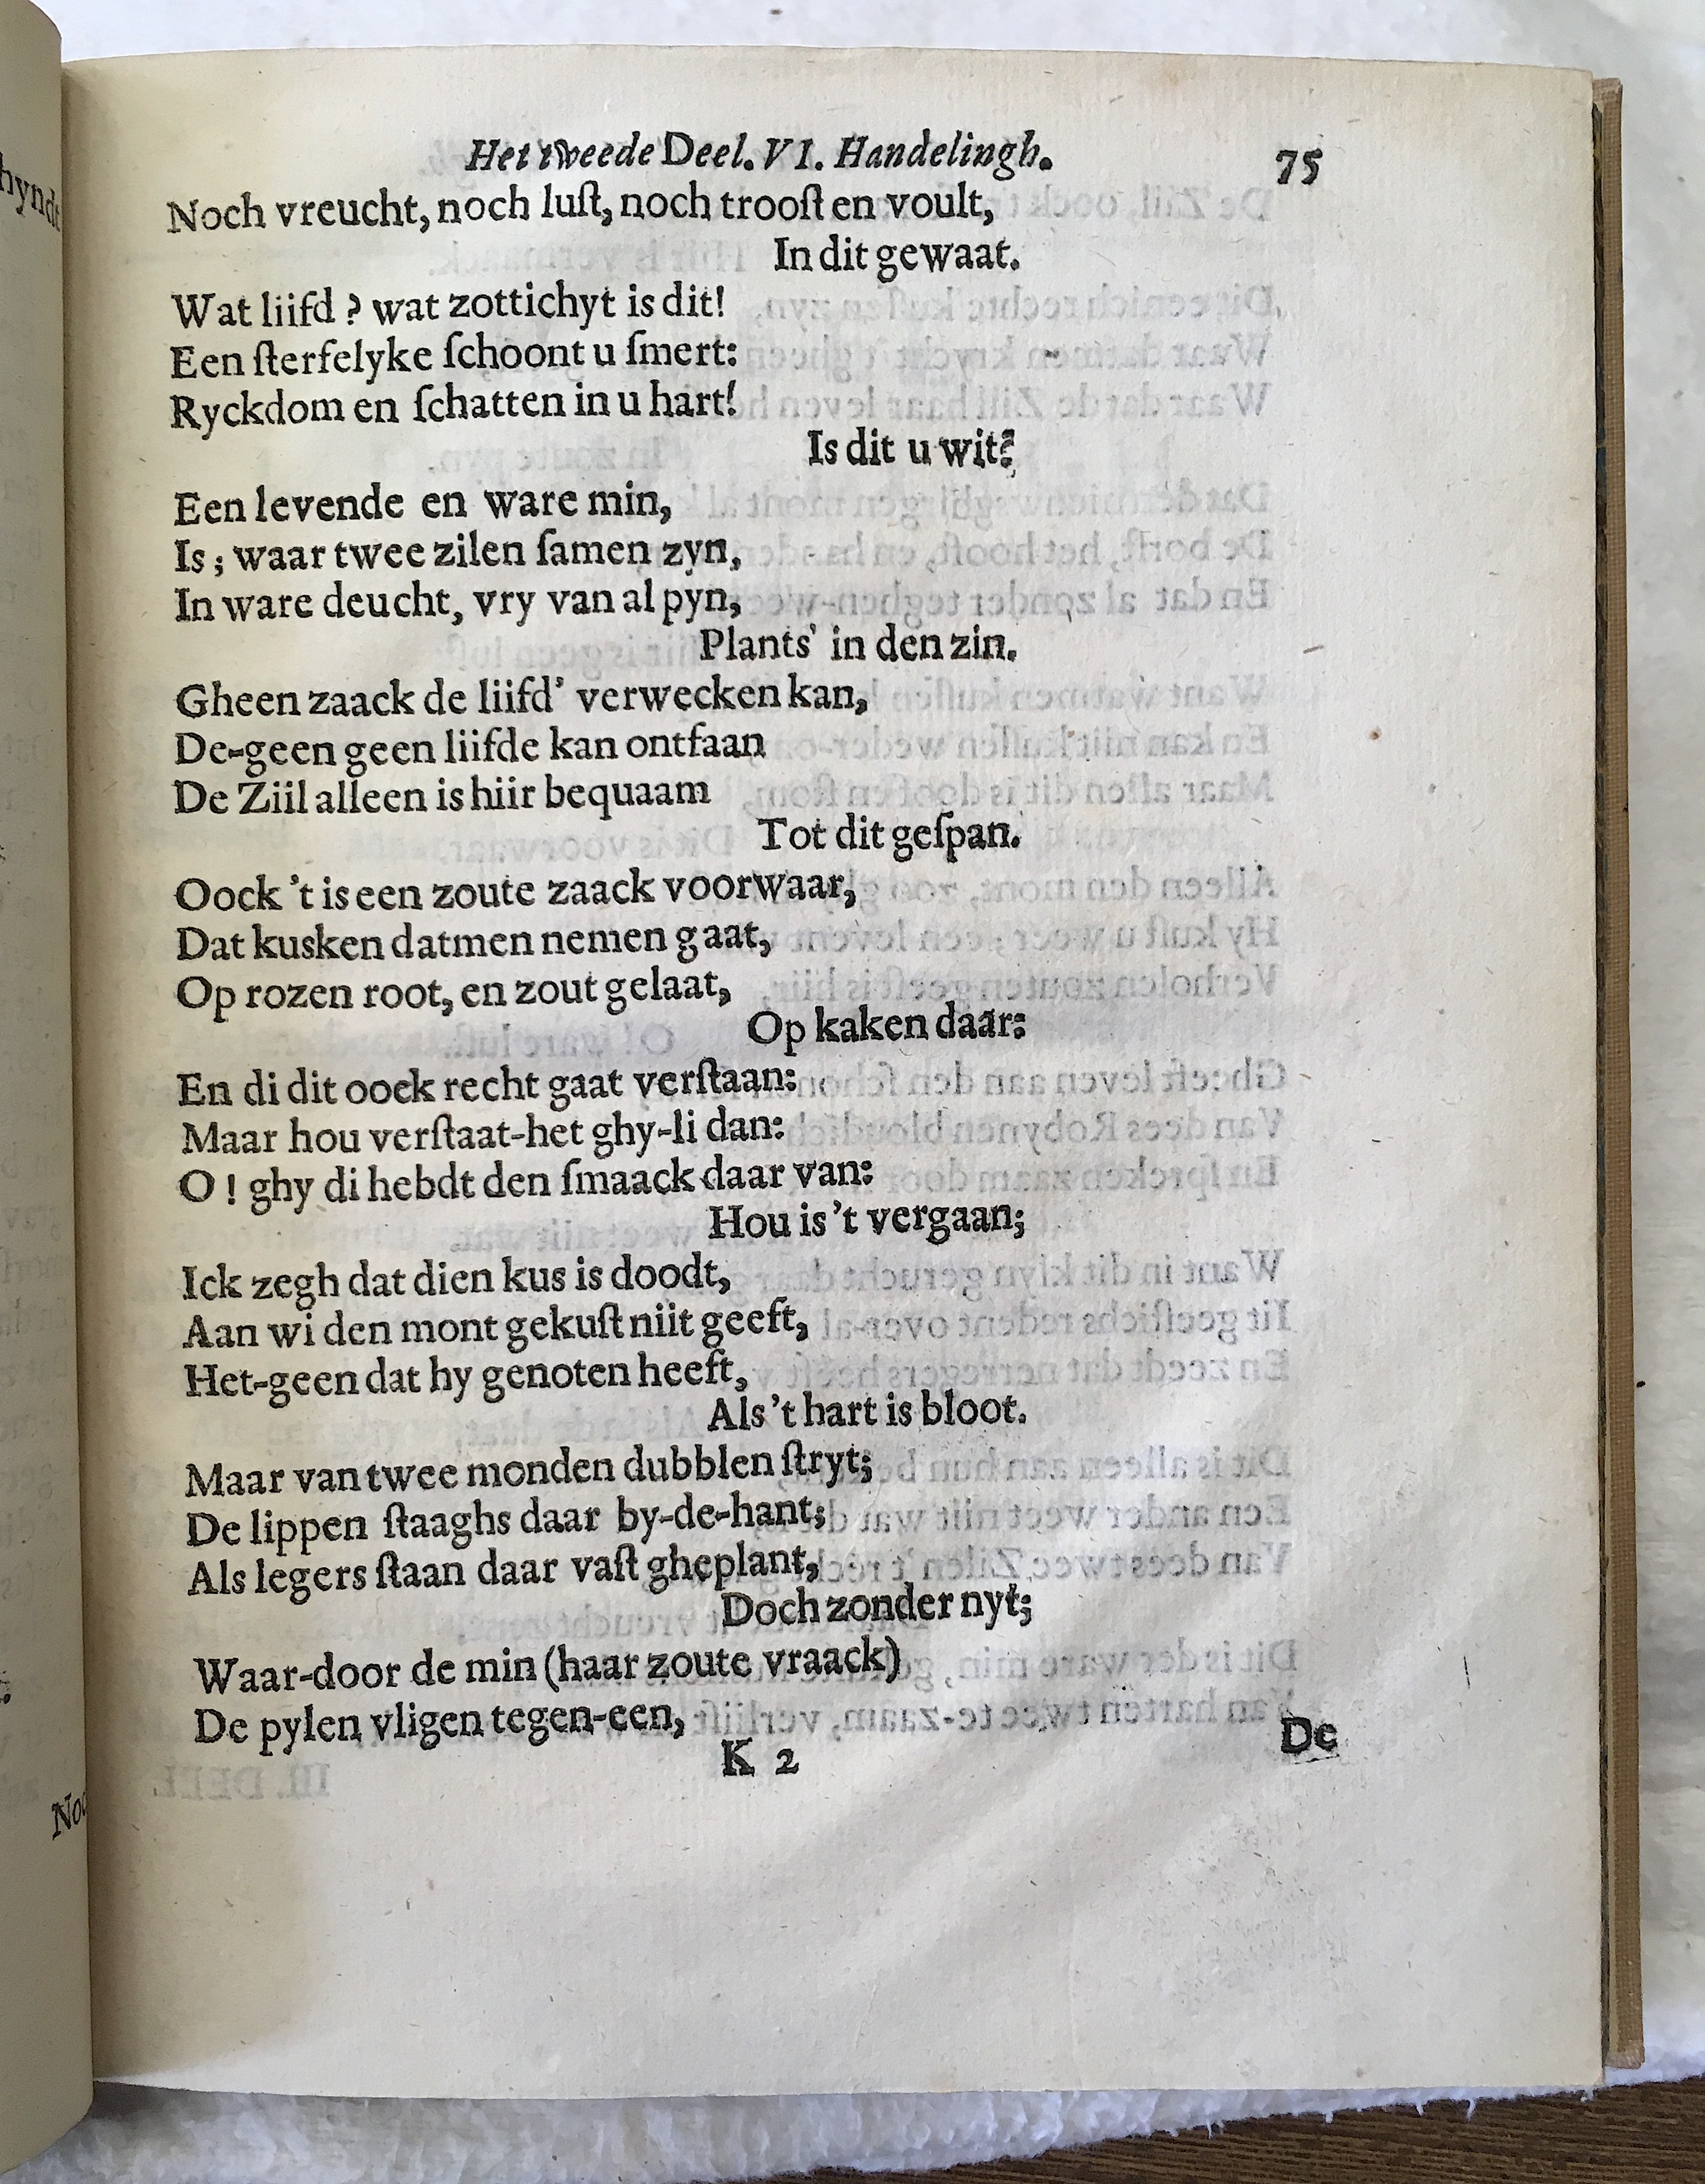 Het tweede Deel. VI. Handelingh. 75
Noch vreucht, noch luſt, noch trooſt en voult,
In dit gewaat.
Wat liifd? wat zottichyt is dit!
Een ſterfelyke ſchoont u ſmert:
Ryckdom en ſchatten in u hart!
Is dit u wit?
Een levende en ware min,
Is; waar twee zilen ſamen zyn,
In ware deucht, vry van al pyn,
Plants' in den zin.
Gheen zaack de liifd' verwecken kan,
De-geen geen liifde kan ontfaan
De Ziil alleen is hiir bequaam
Tot dit geſpan.
Oock 't is een zoute zaack voorwaar,
Dat kusken datmen nemen gaat,
Op rozen root, en zout gelaat,
Op kaken daar:
En di dit oock recht gaat verſtaan:
Maar hou verſtaat-het ghy-li dan:
O! ghy di hebdt den ſmaack daar van:
Hou is 't vergaan;
Ick zegh dat dien kus is doodt,
Aan wi den mont gekuſt niit geeft,
Het-geen dat hy genoten heeft,
Als 't hart is bloot.
Maar van twee monden dubblen ſtryt;
De lippen ſtaaghs daar by-de-hant;
Als legers ſtaan daar vaſt gheplant,
Doch zonder nyt;
Waar-door de min (haar zoute vraack)
De pylen vligen tegen-een,
K 2 De